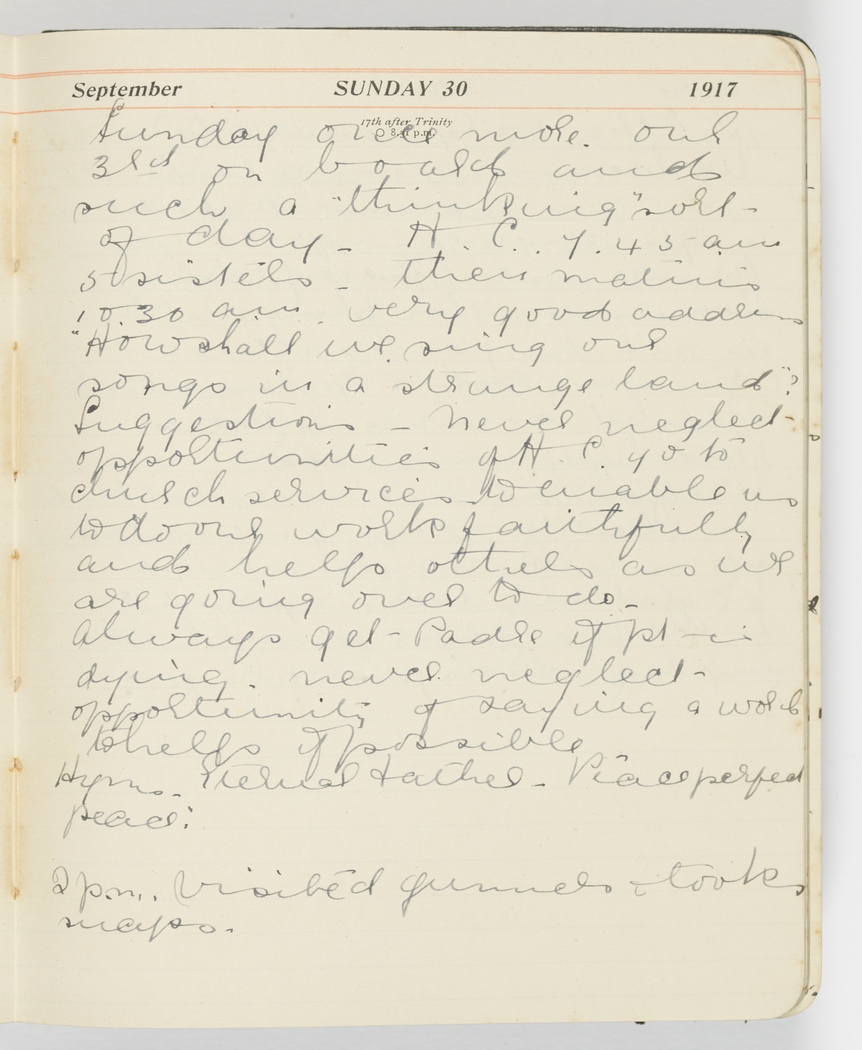 September SUNDAY 30 1917
17th after Trinity
8.31 p.m.
Sunday once more. our
3rd on board and
such a "thinking" sort
of day - H. C. 7.45 am
5 sisters - then matins
10.30 am. very good address
"How shall we sing our
songs in a strange land"?
Suggestions - never neglect
opportunities of H. C. go to
church services to enable us
to do our work faithfully
and help others as we
are going over to do -
Always get Padre if pt is
dying. never neglect
opportunity of saying a word
to help if possible
Hymns - Eternal Father - Peace perfect
peace.
2 p.m. visited gunners & took
snaps.